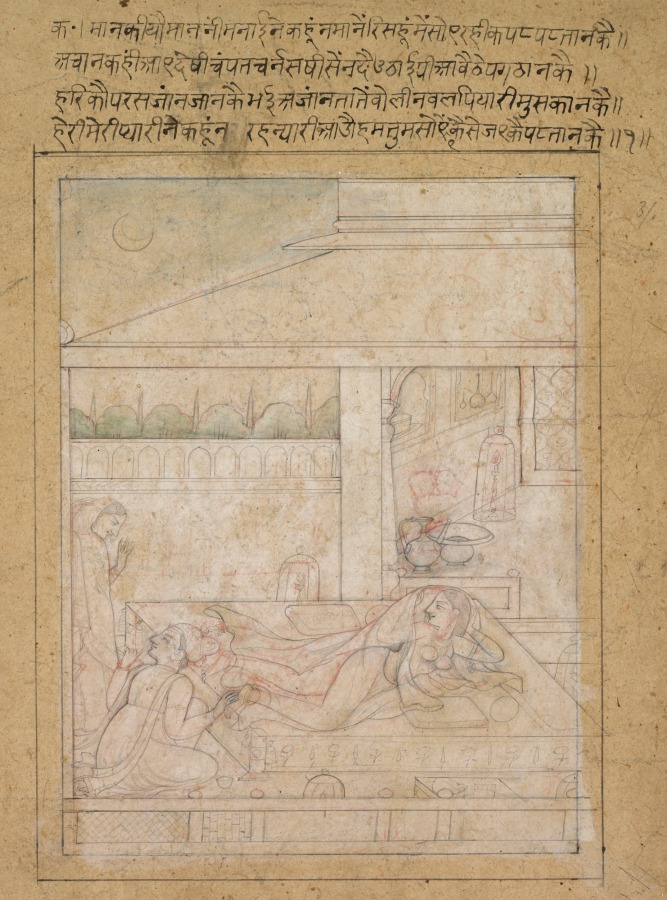 क॰। मानकीयौ माननीमनाई नेकहूं न मानें रिसहूं में सोएरही कपटपटतानकै॥
अचानकहीं आए देषी चंपतचर्नसषीसेंनदै उठाई पी आ बैठे पगठानकै॥
हरिकौपरसजांनजानकैभईअजांनतातें बोली नवलपियारी मुसकानकै॥
हेरी मेरी प्यारी नेकहूं न रहन्यारी आउौ हमतुमसोएं कै सेज एकै पटतानकै॥१॥